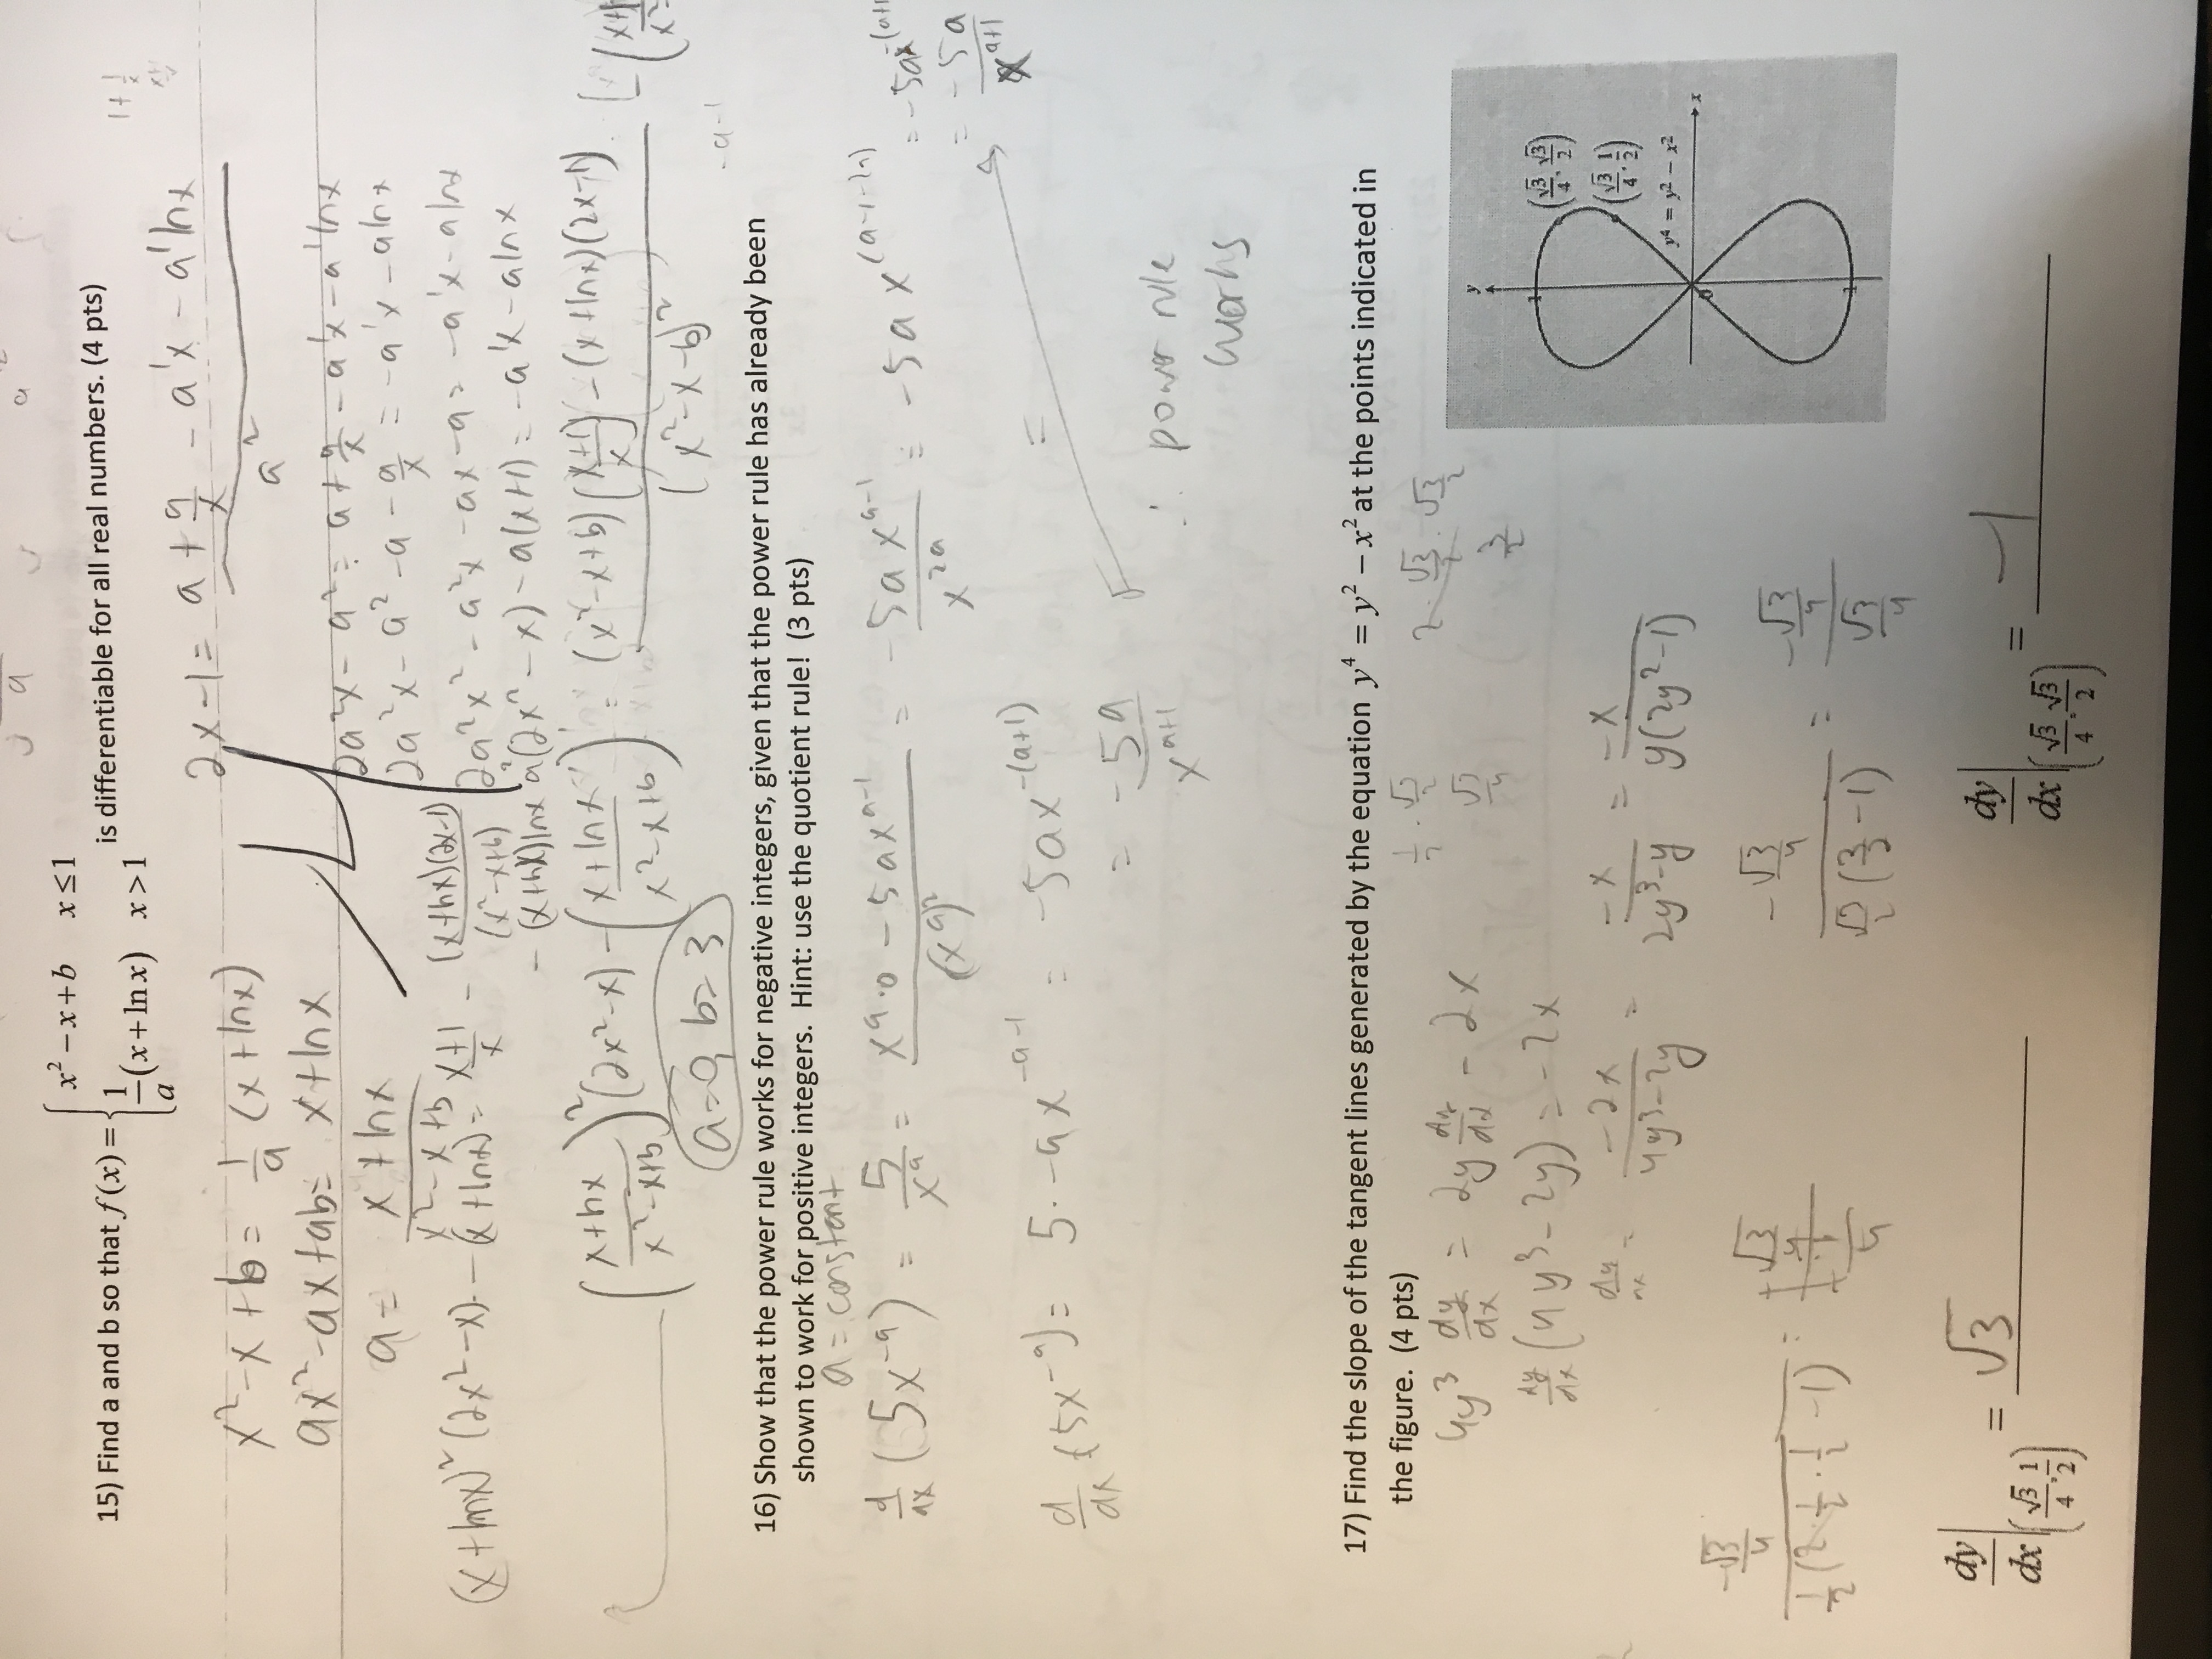 15) Find a and b so that f(x) = { x² − x + b   x ≤ 1
1/a (x + ln x)   x > 1   is differentiable for all real numbers. (4 pts)
1 + 1/x
2x − 1 = (a + a/x − a'x − a'lnx) / a²
x² − x + b = 1/a (x + lnx)
ax² − ax + ab = x + lnx
a = (x + lnx) / (x² − x + b)
2a²x − a² = a + a/x − a'x − a'lnx
2a²x − a² − a − a/x = −a'x − alnx
2a²x² − a²x − ax − a = −a'x − alnx
a²(2x² − x) − a(x+1) = −a'x − alnx
(x + lnx)² (2x² − x) − (x + lnx) = (x+1)/x − (x+lnx)(2x−1) / (x² − x+b)
− (x+lnx)lnx
((x+lnx)/(x² − x+b))² (2x² − x) − ((x + lnx)/(x² − x+b)) = ((x² − x+b)((x+1)/x) − (x + lnx)(2x−1)) / (x² − x − b)²
a=0, b=3
−a−1
16) Show that the power rule works for negative integers, given that the power rule has already been
shown to work for positive integers. Hint: use the quotient rule! (3 pts)
a = constant
d/dx (5x^-a) = 5/x^a = (x^a·0 − 5ax^(a−1)) / (x^a)² = −5ax^(a−1) / x^2a = −5ax^(a−1−2a) = −5ax^-(a+1
= −5a / x^(a+1)
d/dx (5x^-a) = 5·−ax^(−a−1) = −5ax^-(a+1) =
= −5a / x^(a+1)
∴ power rule
works
17) Find the slope of the tangent lines generated by the equation y⁴ = y² − x² at the points indicated in
the figure. (4 pts)
1/2 · √3/2
√3/4
2 · √3/2 · √3/2
3/2
4y³ dy/dx = 2y dy/dx − 2x
dy/dx (4y³ − 2y) = −2x
dy/dx = −2x/(4y³−2y) = −x/(2y³−y) = −x/(y(2y²−1))
y
1
(√3/4, √3/2)
(√3/4, 1/2)
y⁴ = y² − x²
0
x
1
(−√3/4) / (1/2(2·1/2·1/2 −1)) = (+√3/4) / (+1/4)
(−√3/4) / (√3/2 (3/2 −1)) = (−√3/4) / (√3/4)
dy/dx |(√3/4, 1/2) = √3
dy/dx |(√3/4, √3/2) = −1